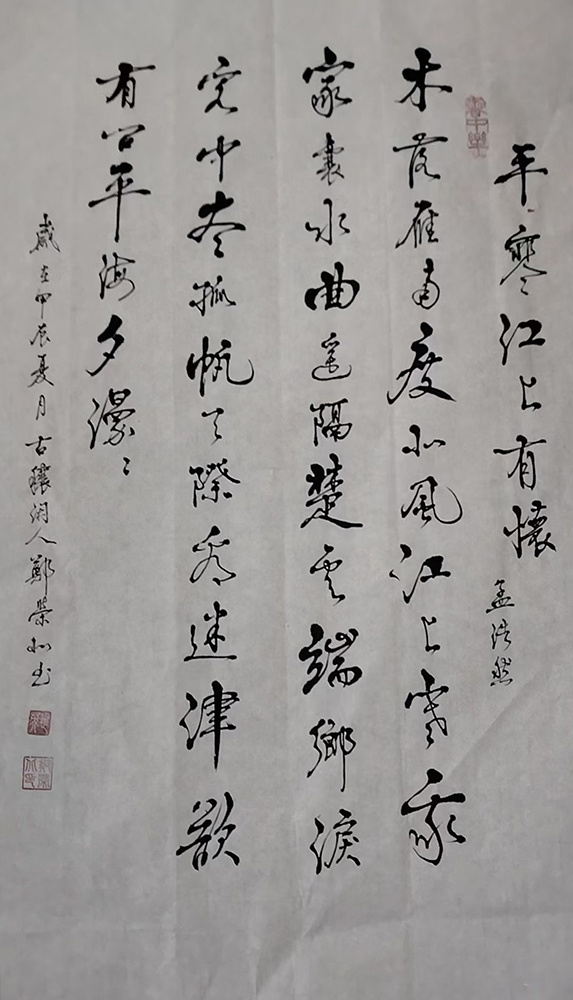 早寒江上有懷 孟浩然
木落雁南度北風江上寒我
家襄水曲遥隔楚云端鄉淚
客中尽孤帆天際看迷津欲
有问平海夕漫〻
歲在甲辰夏月古穰闲人鄭榮北书